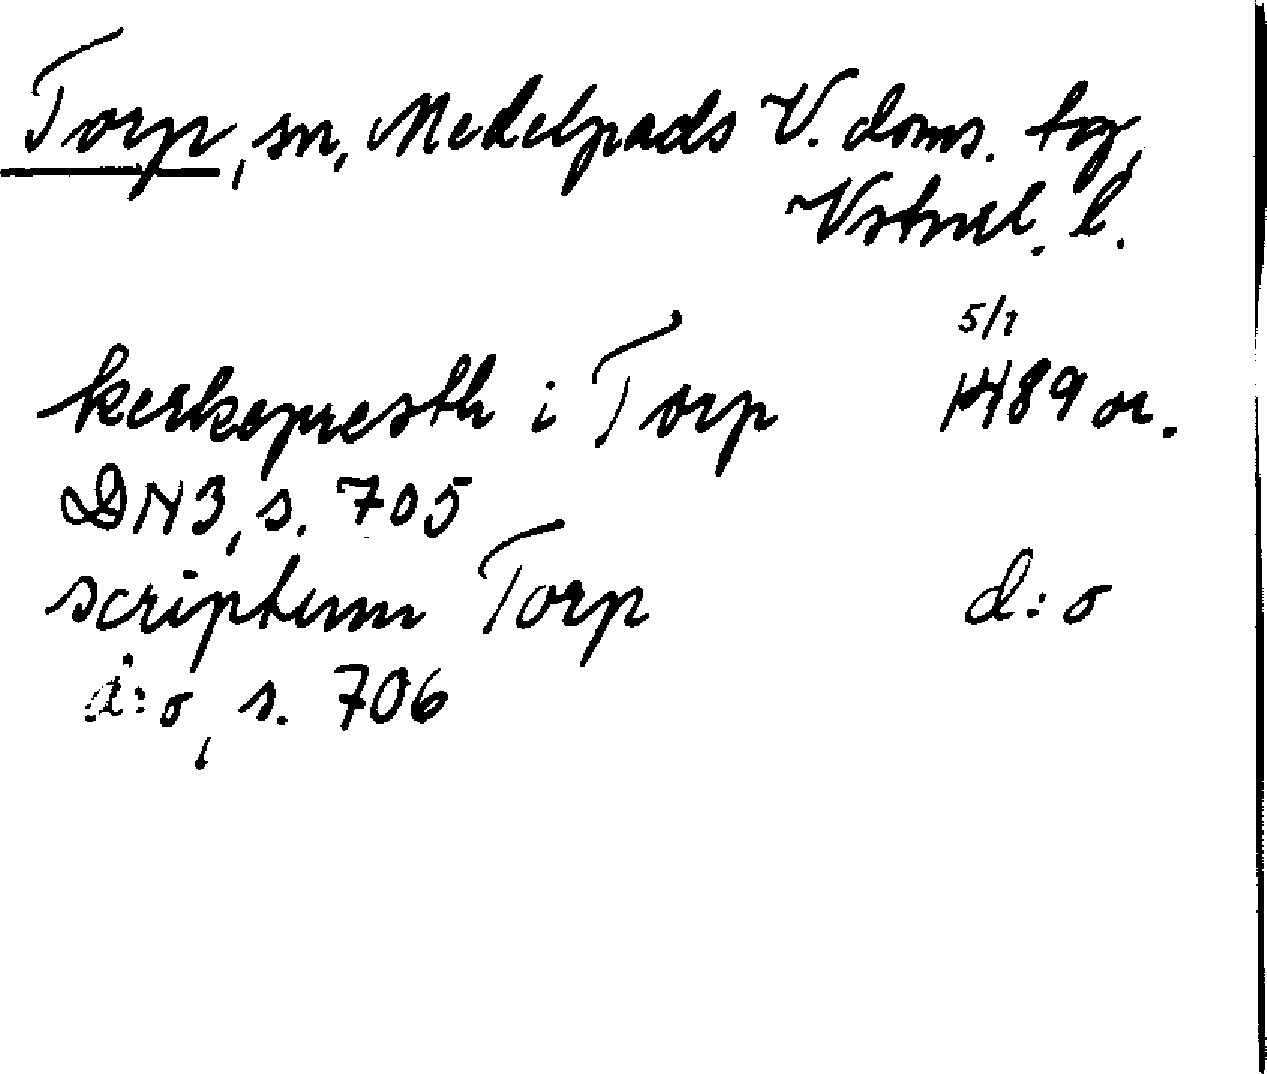 Torp, sn, Medelpads V. doms. tg,
Vstnrl. l.
5/1
kerkopresth i Torp 1489 or.
DN3, s. 705
scriptum Torp d:o
d:o, s. 706